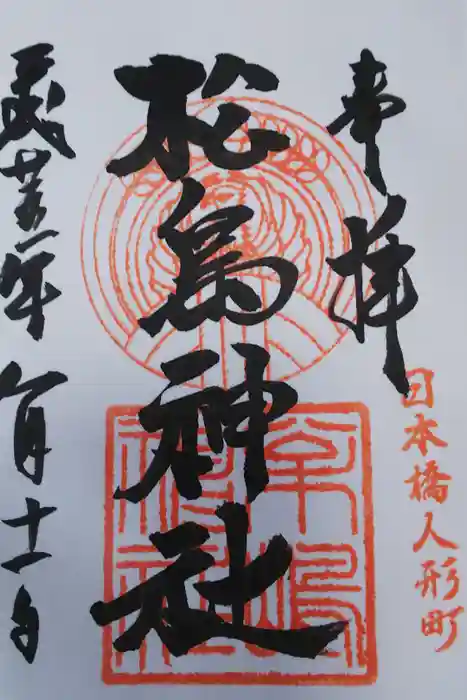 奉拝
日本橋人形町
松島神社
平成 一年 月十 日